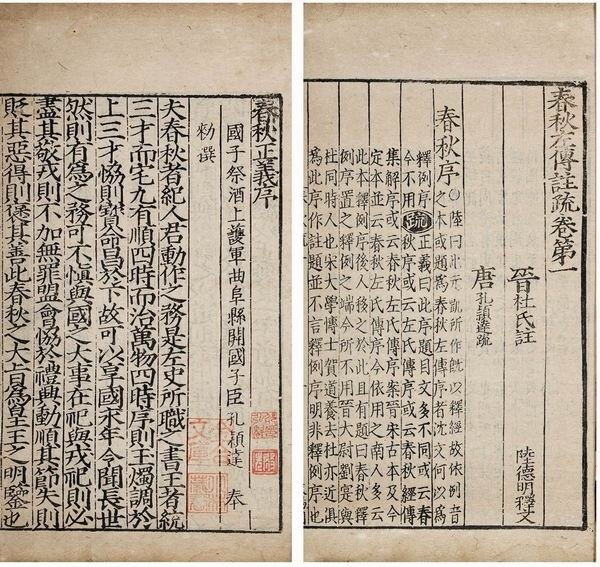 春秋左傳註疏卷第一
晉杜氏註
唐孔頴達疏
陸德明釋文
春秋序○陸曰此元凱所作旣以釋經故依例音
之本或題爲春秋左傳序者沈文何以爲
釋例序疏正義曰此序題目文多不同或云春
今不用秋序或云左氏傳序或云春秋經傳
集解序或云春秋左氏傳序案晉宋古本及今
定本並云春秋左氏傳序今依用之南人多云
此本釋例序後人移之於此且有題曰春秋
例序置之釋例之端今所不用晉大尉劉寔與
杜同時人也宋大學博士賀道養去杜亦近俱
爲此序作註題並不言釋例序明非釋例序也
春秋正義序
國子祭酒上護軍曲阜縣開國子臣孔頴達奉
勑撰
夫春秋者紀人君動作之務是左史所職之書王者統
三才而宅九有順四時而治萬物四時序則玉燭調於
上三才協則寶命昌於下故可以享國永年令聞長世
然則有爲之務可不愼與國之大事在祀與戎祀則必
盡其敬戎則不加無罪盟會協於禮興動順其節失則
貶其惡得則褒其善此春秋之大旨爲皇王之明鑒也